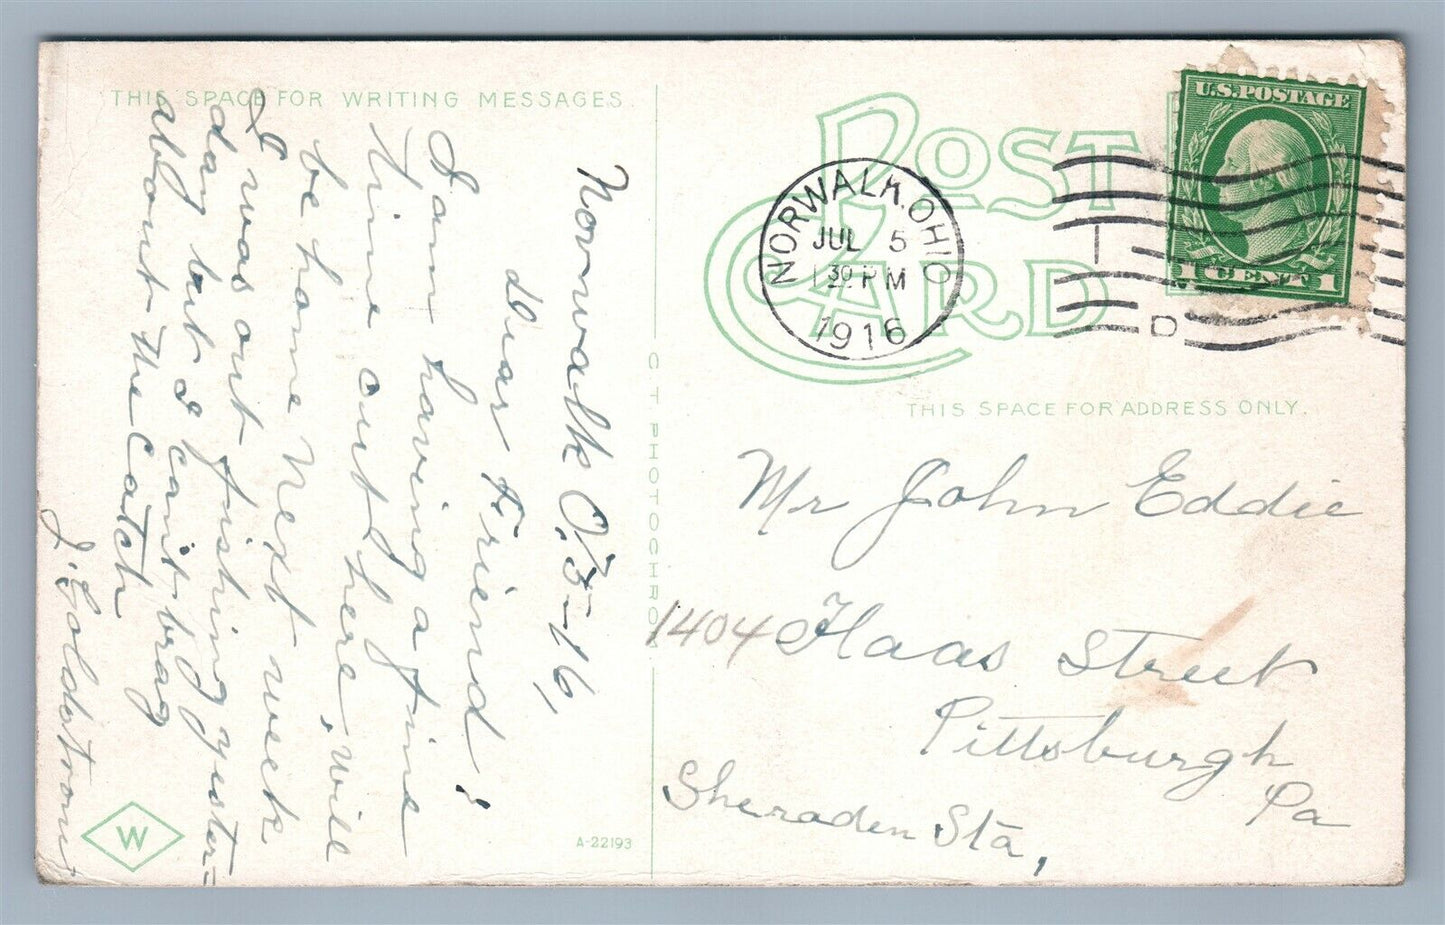 THIS SPACE FOR WRITING MESSAGES
Norwalk O. 7/5-16,
Dear Friend:
I am having a fine
time out here, will
be home next week
I was out fishing yester=
day but I can't brag
about the catch
J. Goldstrom
W
A-22193
C T PHOTOCHROM
POST CARD
NORWALK, OHIO
JUL 5
12 30 PM
1916
D
U.S. POSTAGE
1 CENT 1
THIS SPACE FOR ADDRESS ONLY.
Mr John Eddie
1404 Haas Street
Pittsburgh
Pa
Sheraden Sta,